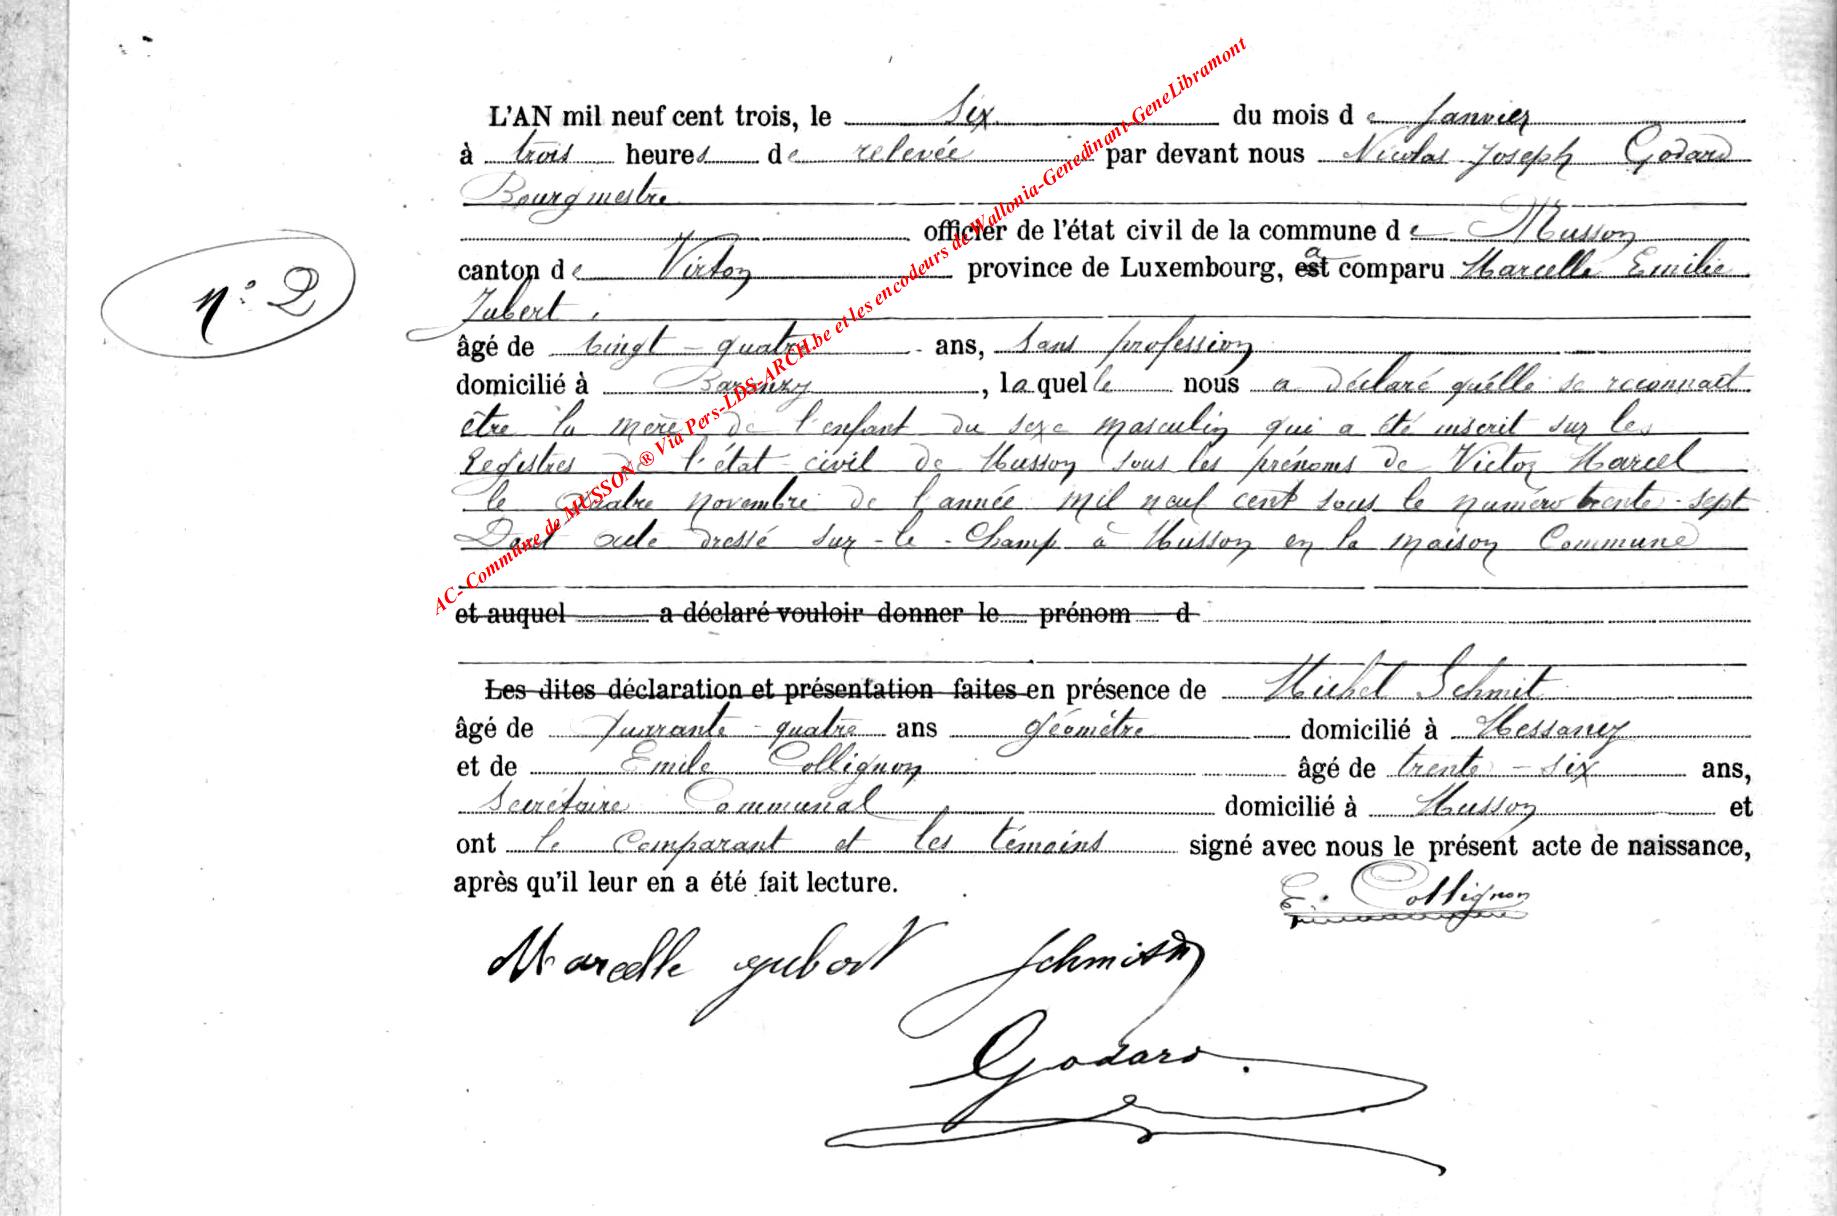 L'AN mil neuf cent trois, le six du mois de Janvier
à trois heures de relevée par devant nous Nicolas Joseph Godard
Bourgmestre
officier de l'état civil de la commune de Musson
n° 2
canton de Virton province de Luxembourg, est a comparu Marcelle Emilie
Jubert
âgé de vingt-quatre ans, sans profession
domicilié à Baranzy, laquelle nous a déclaré qu'elle se reconnait
être la mère de l'enfant du sexe masculin qui a été inscrit sur les
Registres de l'état-civil de Musson sous les prénoms de Victor Marcel
le quatre novembre de l'année mil neuf cent sous le numéro trente-sept
Dont acte dressé sur-le-Champ à Musson en la maison Commune
et auquel a déclaré vouloir donner le prénom d
Les dites déclaration et présentation faites en présence de Michel Schmit
âgé de quarante-quatre ans géomètre domicilié à Messancy
et de Emile Collignon âgé de trente-six ans,
Secrétaire Communal domicilié à Musson et
ont le comparant et les témoins signé avec nous le présent acte de naissance,
après qu'il leur en a été fait lecture.
E. Collignon
Marcelle Jubert Schmit
Godard
AC- Commune de MUSSON ® Via Pers-LDS-ARCH.be et les encodeurs de Wallonia-Genedinant-GeneLibramont